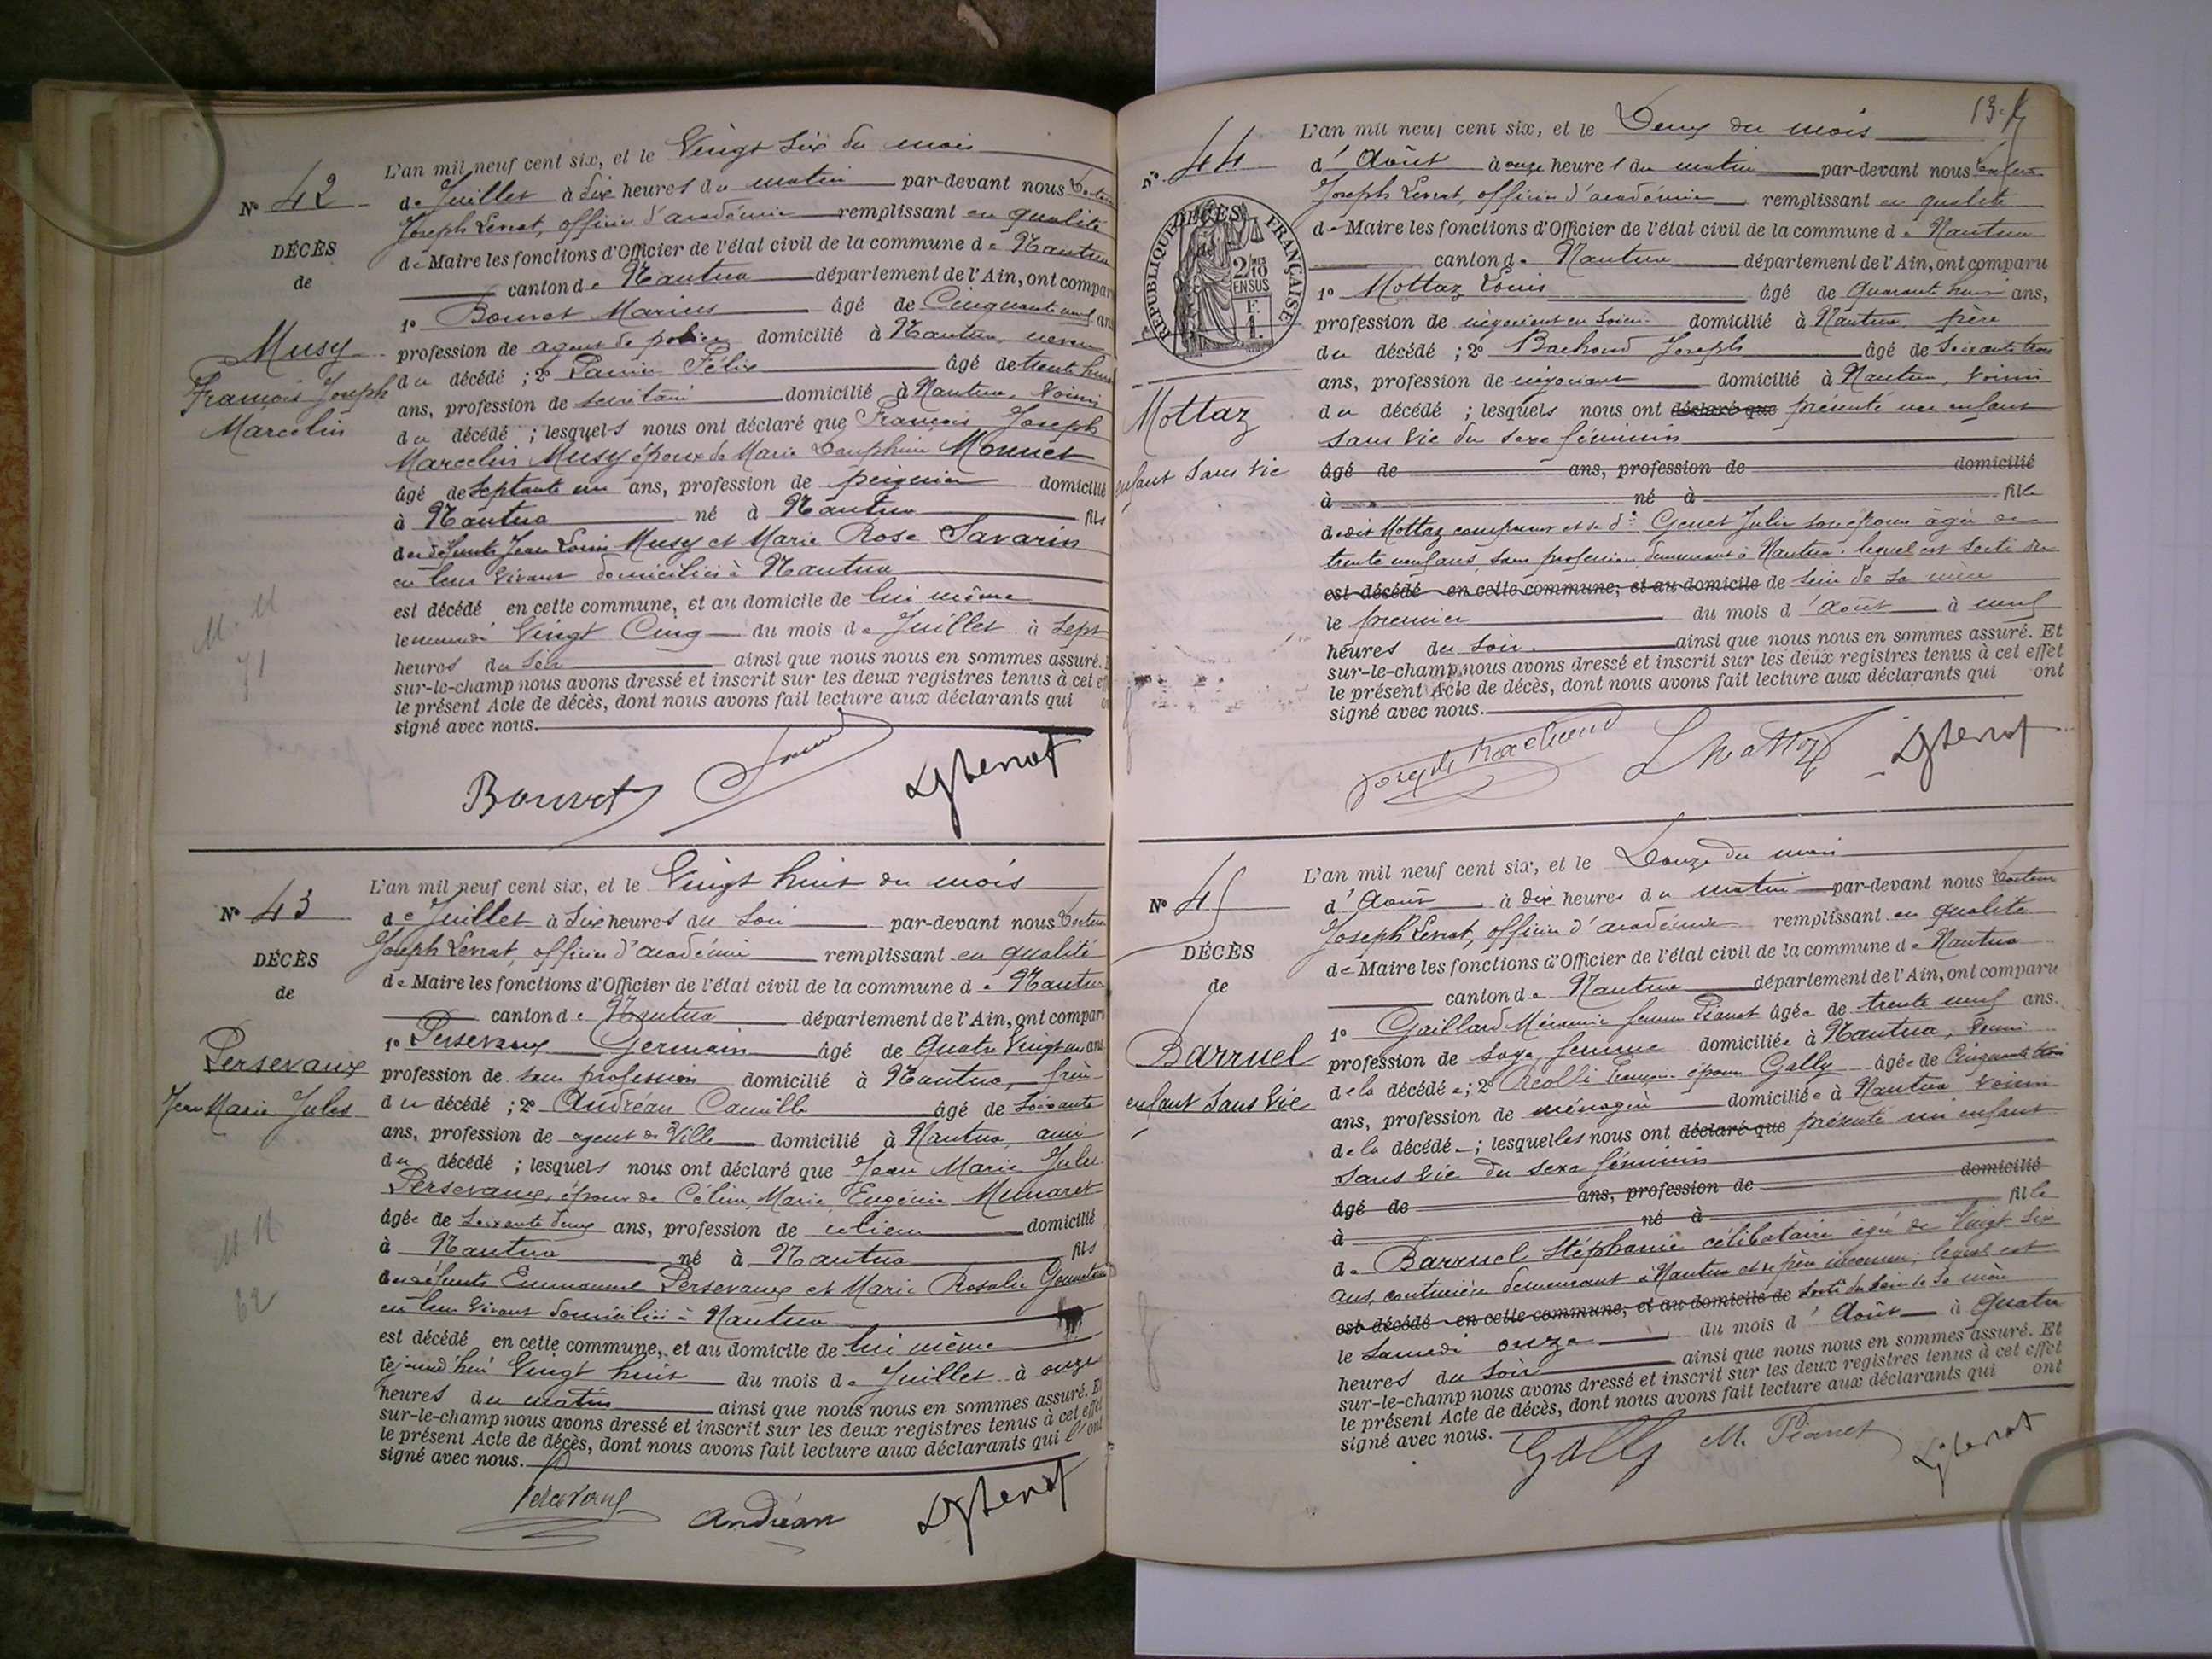 N° 42
DÉCÈS
de
Musy
François Joseph
Marcelin
M. M
71
L'an mil neuf cent six, et le Vingt six du mois
de Juillet à dix heures du matin par-devant nous Docteur
Joseph Lenat, officier d'académie remplissant en qualité
de Maire les fonctions d'Officier de l'état civil de la commune de Nantua
canton de Nantua département de l'Ain, ont compar
1° Bouvet Marius âgé de Cinquante neuf an
profession de agent de police domicilié à Nantua, neveu
du décédé ; 2° Félix âgé de trente huit
ans, profession de secrétaire domicilié à Nantua, voisin
du décédé ; lesquels nous ont déclaré que François Joseph
Marcelin Musy époux de Marie Dauphine Monnet
âgé de septante un ans, profession de peignier domicilié
à Nantua né à Nantua fils
des défunts Jean Louis Musy et Marie Rose Savarin
en leur vivant domiciliés à Nantua
est décédé en cette commune, et au domicile de lui même
le Vingt Cinq du mois de Juillet à sept
heures du soir ainsi que nous nous en sommes assuré.
sur-le-champ nous avons dressé et inscrit sur les deux registres tenus à cet
le présent Acte de décès, dont nous avons fait lecture aux déclarants qui
signé avec nous.
Bouvet
N° 43
DÉCÈS
de
Persevaux
Jean Marie Jules
M M
62
L'an mil neuf cent six, et le Vingt huit du mois
de Juillet à six heures du soir par-devant nous Docteur
Joseph Lenat, officier d'académie remplissant en qualité
de Maire les fonctions d'Officier de l'état civil de la commune de Nantua
canton de Nantua département de l'Ain, ont compar
1° Persevaux Germain âgé de Quatre Vingt un ans
profession de sans profession domicilié à Nantua, frère
du décédé ; 2° Andréan Camille âgé de soixante
ans, profession de agent de Ville domicilié à Nantua, ami
du décédé ; lesquels nous ont déclaré que Jean Marie Jules
Persevaux, époux de Célina, Marie, Eugénie Munaret
âgé de soixante deux ans, profession de domicilié
à Nantua né à Nantua fils
des défunts Emmanuel Persevaux et Marie Rosalie
en leur vivant domiciliés à Nantua
est décédé en cette commune, et au domicile de lui même
cejourd'hui Vingt huit du mois de Juillet à onze
heures du matin ainsi que nous nous en sommes assuré. Et
sur-le-champ nous avons dressé et inscrit sur les deux registres tenus à cet effet
le présent Acte de décès, dont nous avons fait lecture aux déclarants qui l'ont
signé avec nous.
Andréan
N° 44
RÉPUBLIQUE FRANÇAISE
DÉCÈS
de
2/10 EN SUS
Mottaz
enfant sans vie
L'an mil neuf cent six, et le Deux du mois
d'Août à onze heures du matin par-devant nous Docteur
Joseph Lenat, officier d'académie remplissant en qualité
de Maire les fonctions d'Officier de l'état civil de la commune de Nantua
canton de Nantua département de l'Ain, ont comparu
1° Mottaz Louis âgé de Quarante huit ans,
profession de négociant en domicilié à Nantua, père
du décédé ; 2° Bachoud Joseph âgé de soixante trois
ans, profession de négociant domicilié à Nantua, voisin
du décédé ; lesquels nous ont déclaré que présenté un enfant
sans vie du sexe féminin
âgé de ans, profession de domicilié
à né à fille
dudit Mottaz comparant et de de Genet Julie son épouse âgée de
trente neuf ans, sans profession demeurant à Nantua. lequel est sorti du
est décédé en cette commune, et au domicile de sein de sa mère
le premier du mois d'Août à neuf
heures du soir. ainsi que nous nous en sommes assuré. Et
sur-le-champ nous avons dressé et inscrit sur les deux registres tenus à cet effet
le présent Acte de décès, dont nous avons fait lecture aux déclarants qui ont
signé avec nous.
Joseph Bachoud L Mottaz
N° 45
DÉCÈS
de
Barruel
enfant sans vie
L'an mil neuf cent six, et le Douze du mois
d'Août à dix heures du matin par-devant nous Docteur
Joseph Lenat, officier d'académie remplissant en qualité
de Maire les fonctions d'Officier de l'état civil de la commune de Nantua
canton de Nantua département de l'Ain, ont comparu
1° Gaillard Mélanie femme Pianet âgée de trente neuf ans.
profession de sage femme domiciliée à Nantua,
de la décédée ; 2° Françoise épouse Gally âgée de Cinquante trois
ans, profession de ménagère domiciliée à Nantua voisine
de la décédée ; lesquelles nous ont déclaré que présenté un enfant
sans vie du sexe féminin
âgé de ans, profession de domicilié
à né à fille
de Barruel Stéphanie célibataire âgée de Vingt six
ans, couturière demeurant à Nantua et de père inconnu, lequel est
est décédé en cette commune, et au domicile de sorti du sein de sa mère
le samedi onze du mois d'Août à quatre
heures du soir ainsi que nous nous en sommes assuré. Et
sur-le-champ nous avons dressé et inscrit sur les deux registres tenus à cet effet
le présent Acte de décès, dont nous avons fait lecture aux déclarants qui ont
signé avec nous.
Gally M. Pianet